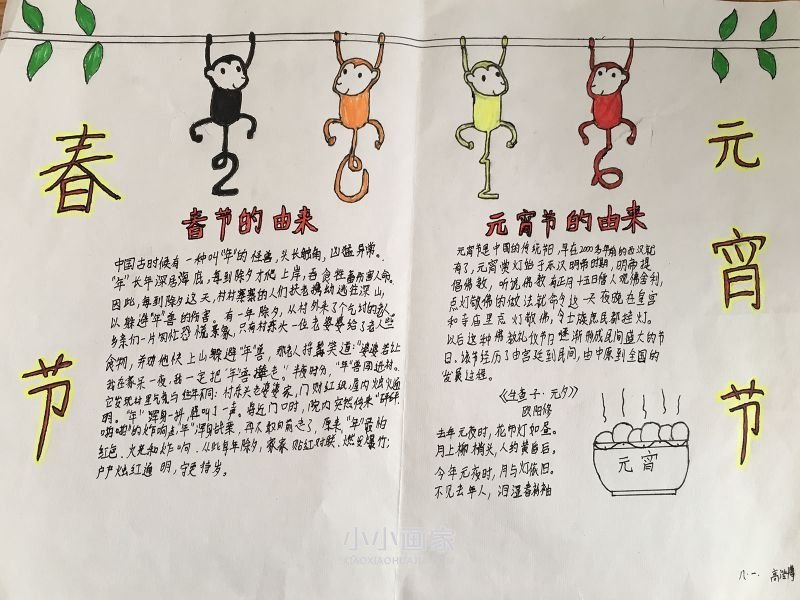 春节
2016
元宵节
春节的由来
中国古时候有一种叫“年”的怪兽,头长触角,凶猛异常。
“年”长年深居海底,每到除夕才爬上岸,吞食牲畜伤害人命。
因此,每到除夕这天,村村寨寨的人们扶老携幼逃往深山,
以躲避“年”兽的伤害。有一年除夕,从村外来了个乞讨的老人
乡亲们一片匆忙恐慌景象,只有村东头一位老婆婆给了老人些
食物,并劝他快上山躲避“年”兽,那老人捋髯笑道:“婆婆若让
我在家呆一夜,我一定把“年”兽撵走。”半夜时分,“年”兽闯进村。
它发现村里气氛与往年不同:村东头老婆婆家,门贴红纸,屋内烛火通
明。“年”浑身一抖,怪叫了一声。将近门口时,院内突然传来“砰砰
啪啪”的炸响声,“年”浑身战栗,再不敢向前凑了,原来“年”最怕
红色、火光和炸响,从此每年除夕,家家贴红对联、燃放爆竹;
户户烛红通明,守更待岁。
元宵节的由来
元宵节是中国的传统节日,早在2000多年前的西汉就
有了,元宵赏灯始于东汉明帝时期,明帝提
倡佛教,听说佛教有正月十五日僧人观佛舍利,
点灯敬佛的做法就命令这一天夜晚在皇宫
和寺庙里点灯敬佛,令士族庶民都挂灯。
以后这种佛教礼仪节日逐渐形成民间盛大的节
日。该节经历了由宫廷到民间,由中原到全国的
发展过程。
《生查子·元夕》
欧阳修
去年元夜时,花市灯如昼。
月上柳梢头,人约黄昏后。
今年元夜时,月与灯依旧。
不见去年人,泪湿春衫袖
元宵
小小画家
八.一.